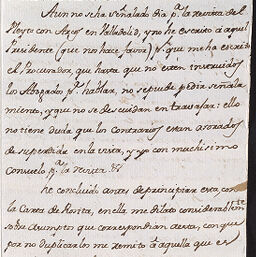 Aun no se ha señalado dia pª la revista del
Pleyto con Arcos en Valladolid, y no he escrito â aquel
Presidente (que nos hace favor) pr que me ha escrito
el Procurador, que hasta que no esten instruidos
los Abogados pª hablar, no se puede pedir señala
miento, y que no se descuidan en travajar: ello
no tiene duda que los Contrarios estan asorados
de su perdida en la vista, y yo con muchisimo
consuelo pª la revista.
He concluido antes de principiar esta, con
la Carta de en ella me dilato considerablemte
sobre Asumptos que corresponden â esta, con que
por no duplicarlos me remito â aquella que es